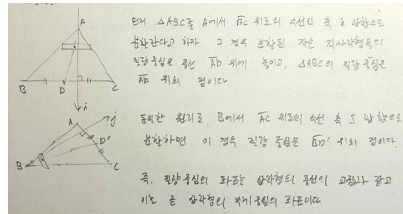 A
B D C
i
먼저 △ABC를 A에서 BC 위로의 수선인 즉 i 방향으로
분할한다고 하자. 그 경우 분할된 작은 직사각형들의
질량중심은 중선 AD 위에 놓이고, △ABC의 질량 중심은
AD 위의 점이다.
j
A
D'
B C
동일한 원리로 B에서 AC 위로의 수선 즉 j 방향으로
분할하면 이 경우 질량 중심은 BD' 위의 점이다.
즉, 질량중심의 좌표는 삼각형의 중선의 교점과 같고
이는 곧 삼각형의 무게중심의 좌표이다